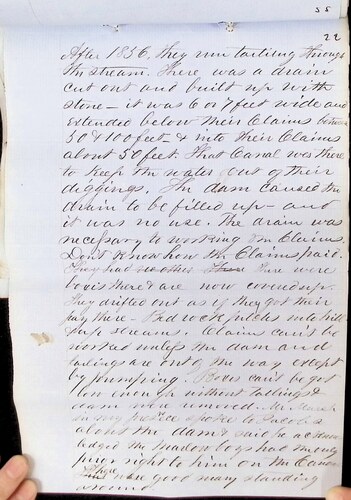 35
22
After 1856. they run tailing through
the stream. There was a drain
cut out and built up with
stone – it was 6 or 7 feet wide and
extended below their Claims between
50 & 100 feet – & into their Claims
about 50 feet. That Canal was there
to keep the water out of their
diggings. The dam caused the
drain to be filled up – and
it was no use. The drain was
necessary to working the Claims.
Don't know how the Claims paid.
They had no other There were
boxes there & are now covered up.
They drifted out as if they got their
pay there – Bed rock pitches into hill
streams. Claims can't be
worked unless the dam and
tailings are out of the way except
by pumping. Boxes can't be got
low enough without tailings &
dam were removed. Mr.
in my presence spoke to Jacobs
about the dam & said he acknow-
ledged the Meadow boys had the
prior right to him on the Canon
There were good many standing
around